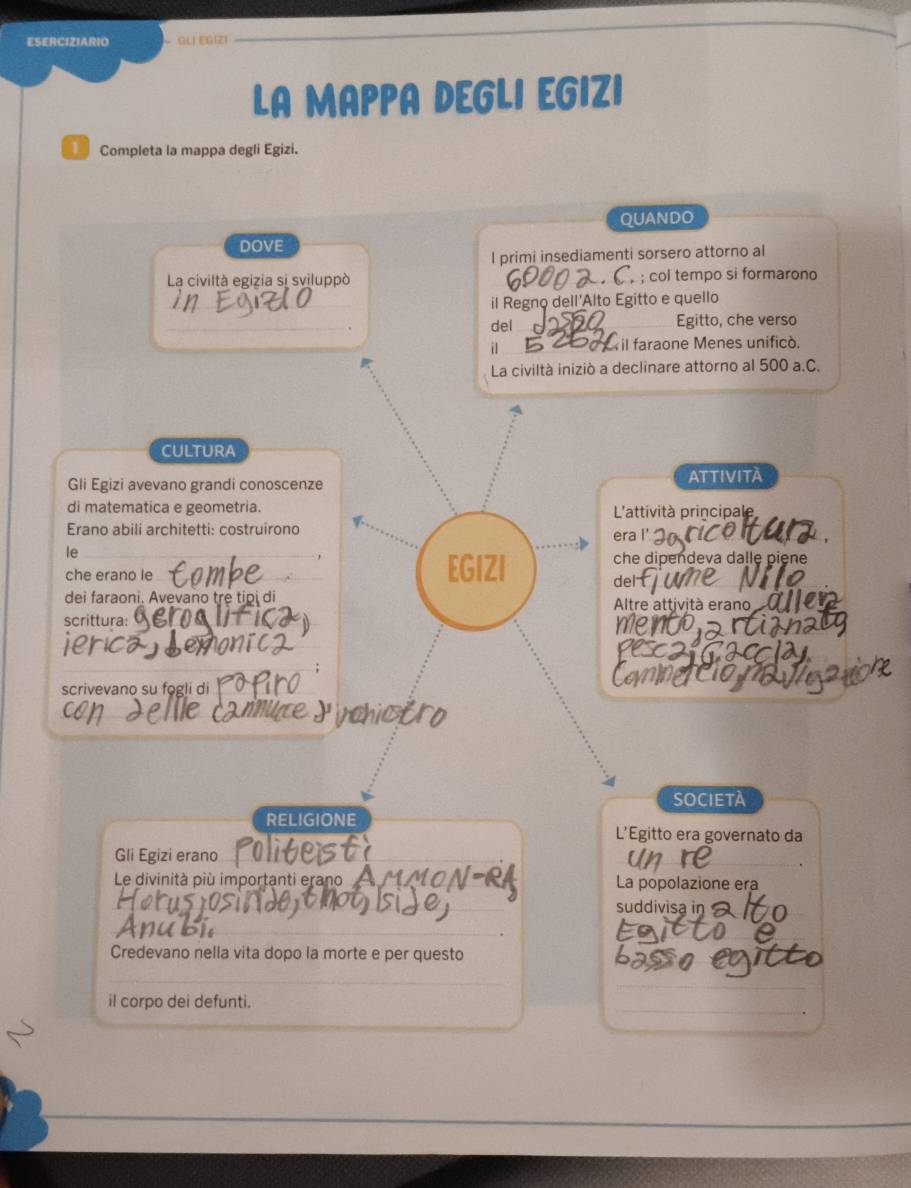 ESERCIZIARIO GLI EGIZI
LA MAPPA DEGLI EGIZI
1 Completa la mappa degli Egizi.
DOVE
La civiltà egizia si sviluppò
in Egizio
.
QUANDO
I primi insediamenti sorsero attorno al
6000 a.C. ; col tempo si formarono
il Regno dell'Alto Egitto e quello
del Egitto, che verso
il il faraone Menes unificò.
La civiltà iniziò a declinare attorno al 500 a.C.
CULTURA
Gli Egizi avevano grandi conoscenze
di matematica e geometria.
Erano abili architetti: costruirono
le ,
che erano le tombe
dei faraoni. Avevano tre tipi di
scrittura: geroglifica,
ierica, demonica
;
scrivevano su fogli di papiro
con
EGIZI
ATTIVITÀ
L'attività principale
era l' agricoltura ,
che dipendeva dalle piene
del fiume Nilo
Altre attività erano alleva
mento, artianato
pesca, caccia,
Commercio, navigazione
RELIGIONE
Gli Egizi erano politeisti
Le divinità più importanti erano AMMON-RA,
Horus, osiride, thot, iside,
Anubi.
Credevano nella vita dopo la morte e per questo
il corpo dei defunti.
SOCIETÀ
L'Egitto era governato da
un re .
La popolazione era
suddivisa in alto
Egitto e
basso egitto
.